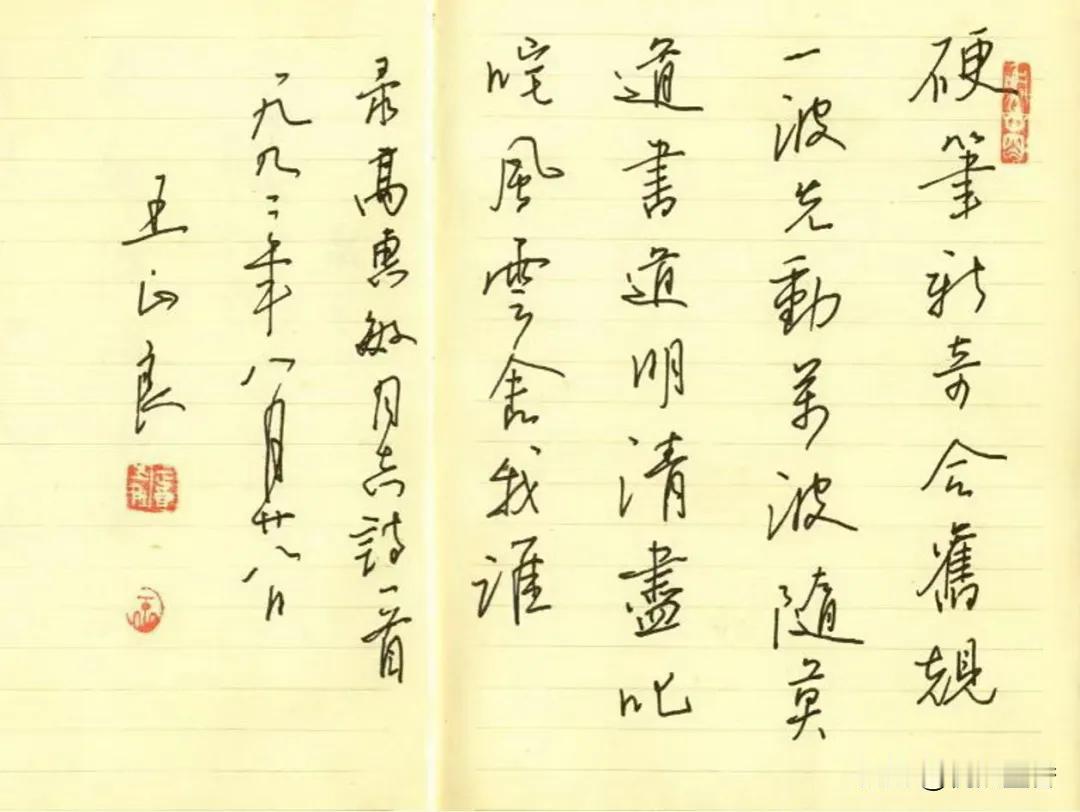 硬筆新奇合舊規
一波先動萬波隨莫
道書道明清盡叱
咤風雲舍我誰
录高惠敏同志詩一首
一九九二年八月廿八日
王正良